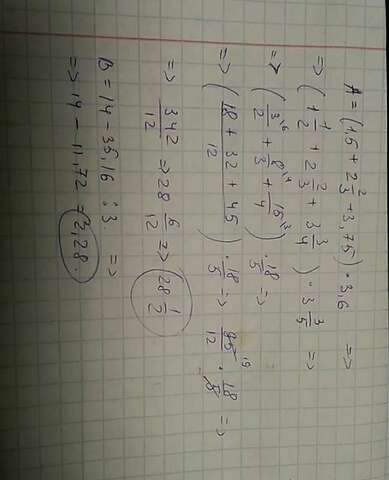 A = (1,5 + 2 2/3 + 3,75) · 3,6 =>
=> (1 1/2 + 2 2/3 + 3 3/4) · 3 3/5 =>
=> (3/2 ·6 + 8/3 ·4 + 15/4 ·3) · 18/5 =>
=> (18 + 32 + 45 / 12) · 18/5 => 95/12 ·19 · 18/5 =>
=> 342/12 => 28 6/12 => 28 1/2
B = 14 - 35,16 : 3. =>
=> 14 - 11,72 = 2,28.